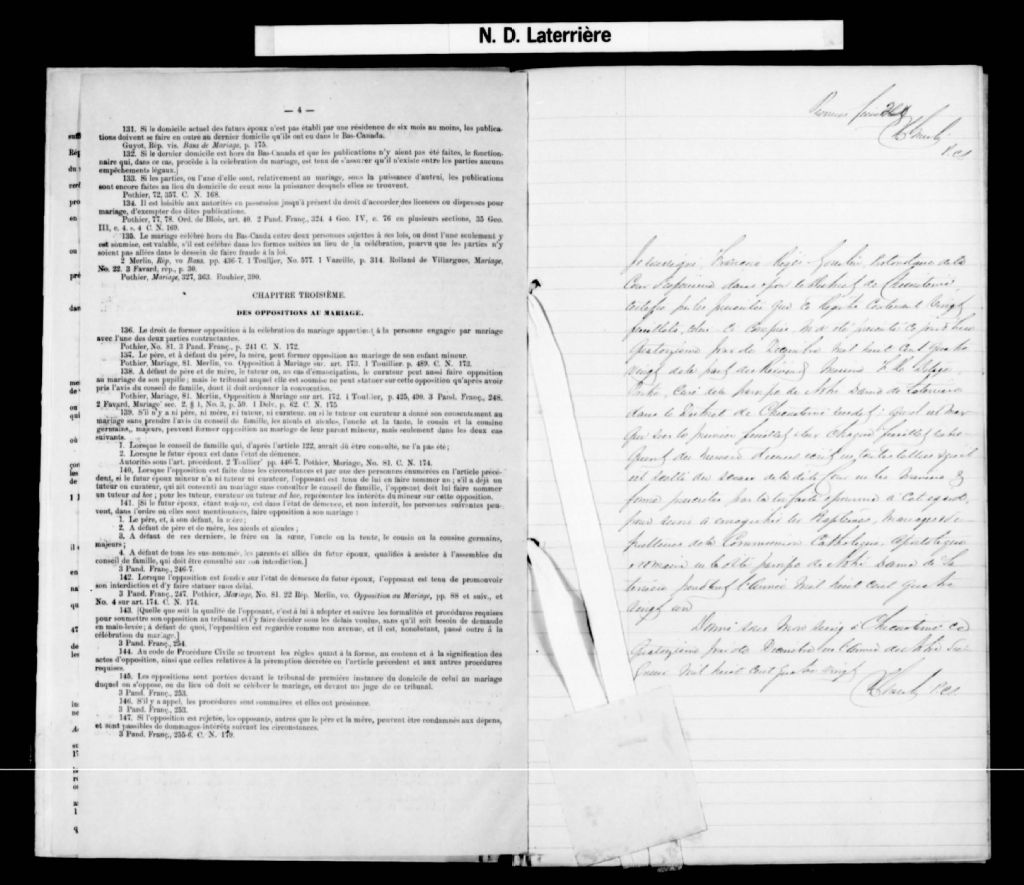 N. D. Laterrière
— 4 —
131. Si le domicile actuel des futurs époux n'est pas établi par une résidence de six mois au moins, les publica-
tions doivent se faire en outre au dernier domicile qu'ils ont eu dans le Bas-Canada.
Guyot, Rép. vis. Bans de Mariage, p. 175.
132. Si le dernier domicile est hors du Bas-Canada et que les publications n'y aient pas été faites, le fonction-
naire qui, dans ce cas, procède à la célébration du mariage, est tenu de s'assurer qu'il n'existe entre les parties aucuns
empêchements légaux.]
133. Si les parties, ou l'une d'elle sont, relativement au mariage, sous la puissance d'autrui, les publications
sont encore faites au lieu du domicile de ceux sous la puissance desquels elles se trouvent.
Pothier, 72, 357. C. N. 168.
134. Il est loisible aux autorités en possession jusqu'à présent du droit d'accorder des licences ou dispenses pour
mariage, d'exempter des dites publications.
Pothier, 77, 78. Ord. de Blois, art. 40. 2 Pand. Franç., 324. 4 Geo. IV, c. 76 en plusieurs sections, 35 Geo.
III, c. 4. s. 4 C. N. 169.
135. Le mariage célébré hors du Bas-Canda entre deux personnes sujettes à ses lois, ou dont l'une seulement y
est soumise, est valable, s'il est célébré dans les formes usitées au lieu de la célébration, pourvu que les parties n'y
soient pas allées dans le dessein de faire fraude à la loi.
2 Merlin, Rép, vo Bans. pp. 436-7. 1 Toullier, No. 577. 1 Vazeille, p. 314. Rolland de Villargues, Mariage,
No. 22. 3 Favard, rép., p. 30.
Pothier, Mariage, 327, 363. Rouhier, 390.
CHAPITRE TROISIÈME.
DES OPPOSITIONS AU MARIAGE.
136. Le droit de former opposition à la célébration du mariage appartient à la personne engagée par mariage
avec l'une des deux parties contractantes.
Pothier, No. 81. 3 Pand. Franç., p. 241 C. N. 172.
137. Le père, et à défaut du père, la mère, peut former opposition au mariage de son enfant mineur.
Pothier, Mariage, 81. Merlin, vo. Opposition à Mariage sur. art. 173. 1 Toullier, p. 489. C. N. 173.
138. A défaut de père et de mère, le tuteur ou, au cas d'émancipation, le curateur peut aussi faire opposition
au mariage de son pupille; mais le tribunal auquel elle est soumise ne peut statuer sur cette opposition qu'après avoir
pris l'avis du conseil de famille, dont il doit ordonner la convocation.
Pothier, Mariage, 81. Merlin, Opposition à Mariage sur art. 172. 1 Toullier, p. 425, 490. 3 Pand. Franç., 248.
2 Favard, Mariage sec. 2. § 1, No. 3, p. 59. 1 Delv., p. 62. C. N. 175.
139. S'il n'y a ni père, ni mère, ni tuteur, ni curateur, ou si le tuteur ou curateur a donné son consentement au
mariage sans prendre l'avis du conseil de famille, les aïeuls et aïeules, l'oncle et la tante, le cousin et la cousine
germains, majeurs, peuvent former opposition au mariage de leur parent mineur, mais seulement dans les deux cas
suivants.
1. Lorsque le conseil de famille qui, d'après l'article 122, aurait dû être consulté, ne l'a pas été;
2. Lorsque le futur époux est dans l'état de démence.
Autorités sous l'art. précédent. 2 Toullier pp. 446-7. Pothier, Mariage, No. 81. C. N. 174.
140. Lorsque l'opposition est faite dans les circonstances et par une des personnes énumérées en l'article précé-
dent, si le futur époux mineur n'a ni tuteur ni curateur, l'opposant est tenu de lui en faire nommer un; s'il a déjà un
tuteur ou curateur, qui ait consenti au mariage sans consulter le conseil de famille, l'opposant doit lui faire nommer
un tuteur ad hoc; pour les tuteur, curateur ou tuteur ad hoc, représenter les intérêts du mineur sur cette opposition.
141. [Si le futur époux, étant majeur, est dans l'état de démence, et non interdit, les personnes suivantes peu-
vent, dans l'ordre où elles sont mentionnées, faire opposition à son mariage:
1. Le père, et, à son défaut, la mère;
2. A défaut de père et de mère, les aïeuls et aïeules;
3. A défaut de ces derniers, le frère ou la sœur, l'oncle ou la tente, le cousin ou la cousine germains,
majeurs;
4. A défaut de tous les sus-nommés, les parents et alliés du futur époux, qualifiés à assister à l'assemblée du
conseil de famille, qui doit être consulté sur son interdiction.]
3 Pand. Franç., 246-7.
142. Lorsque l'opposition est fondée sur l'état de démence du futur époux, l'opposant est tenu de promouvoir
son interdiction et d'y faire statuer sans délai.
3 Pand. Franç., 247. Pothier, Mariage, No. 81. 22 Rép. Merlin, vo. Opposition au Mariage, pp. 88 et suiv., et
No. 4 sur art. 174. C. N. 174.
143. [Quelle que soit la qualité de l'opposant, c'est à lui à adopter et suivre les formalités et procédures requises
pour soumettre son opposition au tribunal et l'y faire décider sous les délais voulus, sans qu'il soit besoin de demande
en main-levée; à défaut de quoi, l'opposition est regardée comme non avenue, et il est, nonobstant, passé outre à la
célébration du mariage.]
3 Pand. Franç., 254.
144. Au code de Procédure Civile se trouvent les règles quant à la forme, au contenu et à la signification des
actes d'opposition, ainsi que celles relatives à la péremption décrétée en l'article précédent et aux autres procédures
requises.
145. Les oppositions sont portées devant le tribunal de première instance du domicile de celui au mariage
duquel on s'oppose, ou du lieu où doit se célébrer le mariage, ou devant un juge de ce tribunal.
3 Pand. Franç., 253.
146. S'il y a appel, les procédures sont sommaires et elles ont préséance.
3 Pand. Franç., 253.
147. Si l'opposition est rejetée, les opposants, autres que le père et la mère, peuvent être condamnés aux dépens,
et sont passibles de dommages-intérêts suivant les circonstances.
3 Pand. Franç., 255-6. C. N. 179.
Premier feuillet
P.C.S
Je soussigné, Protonotaire de la
Cour Supérieure dans et pour le district de Chicoutimi
certifie par les présentes que ce Registre contenant vingt
feuillets, celui ce compris, m'a été présenté ce jourd'hui
quatorzième jour de Décembre mil huit cent quatre
vingt de la part du Révérend
Curé de la paroisse de Notre Dame de Laterrière
dans le District de Chicoutimi
que sur le premier feuillet et sur chaque feuillet
du sceau de la dite Cour
pour servir à enregistrer les Baptêmes, Mariages et
sépultures de la Communion Catholique, Apostolique
et romaine en la dite paroisse de Notre Dame de La
terrière pendant l'année mil huit cent quatre
vingt un
Donné sous mon seing à Chicoutimi ce
quatorzième jour de Décembre en l'année de Notre Sei
gneur mil huit cent quatre vingt
P.C.S.